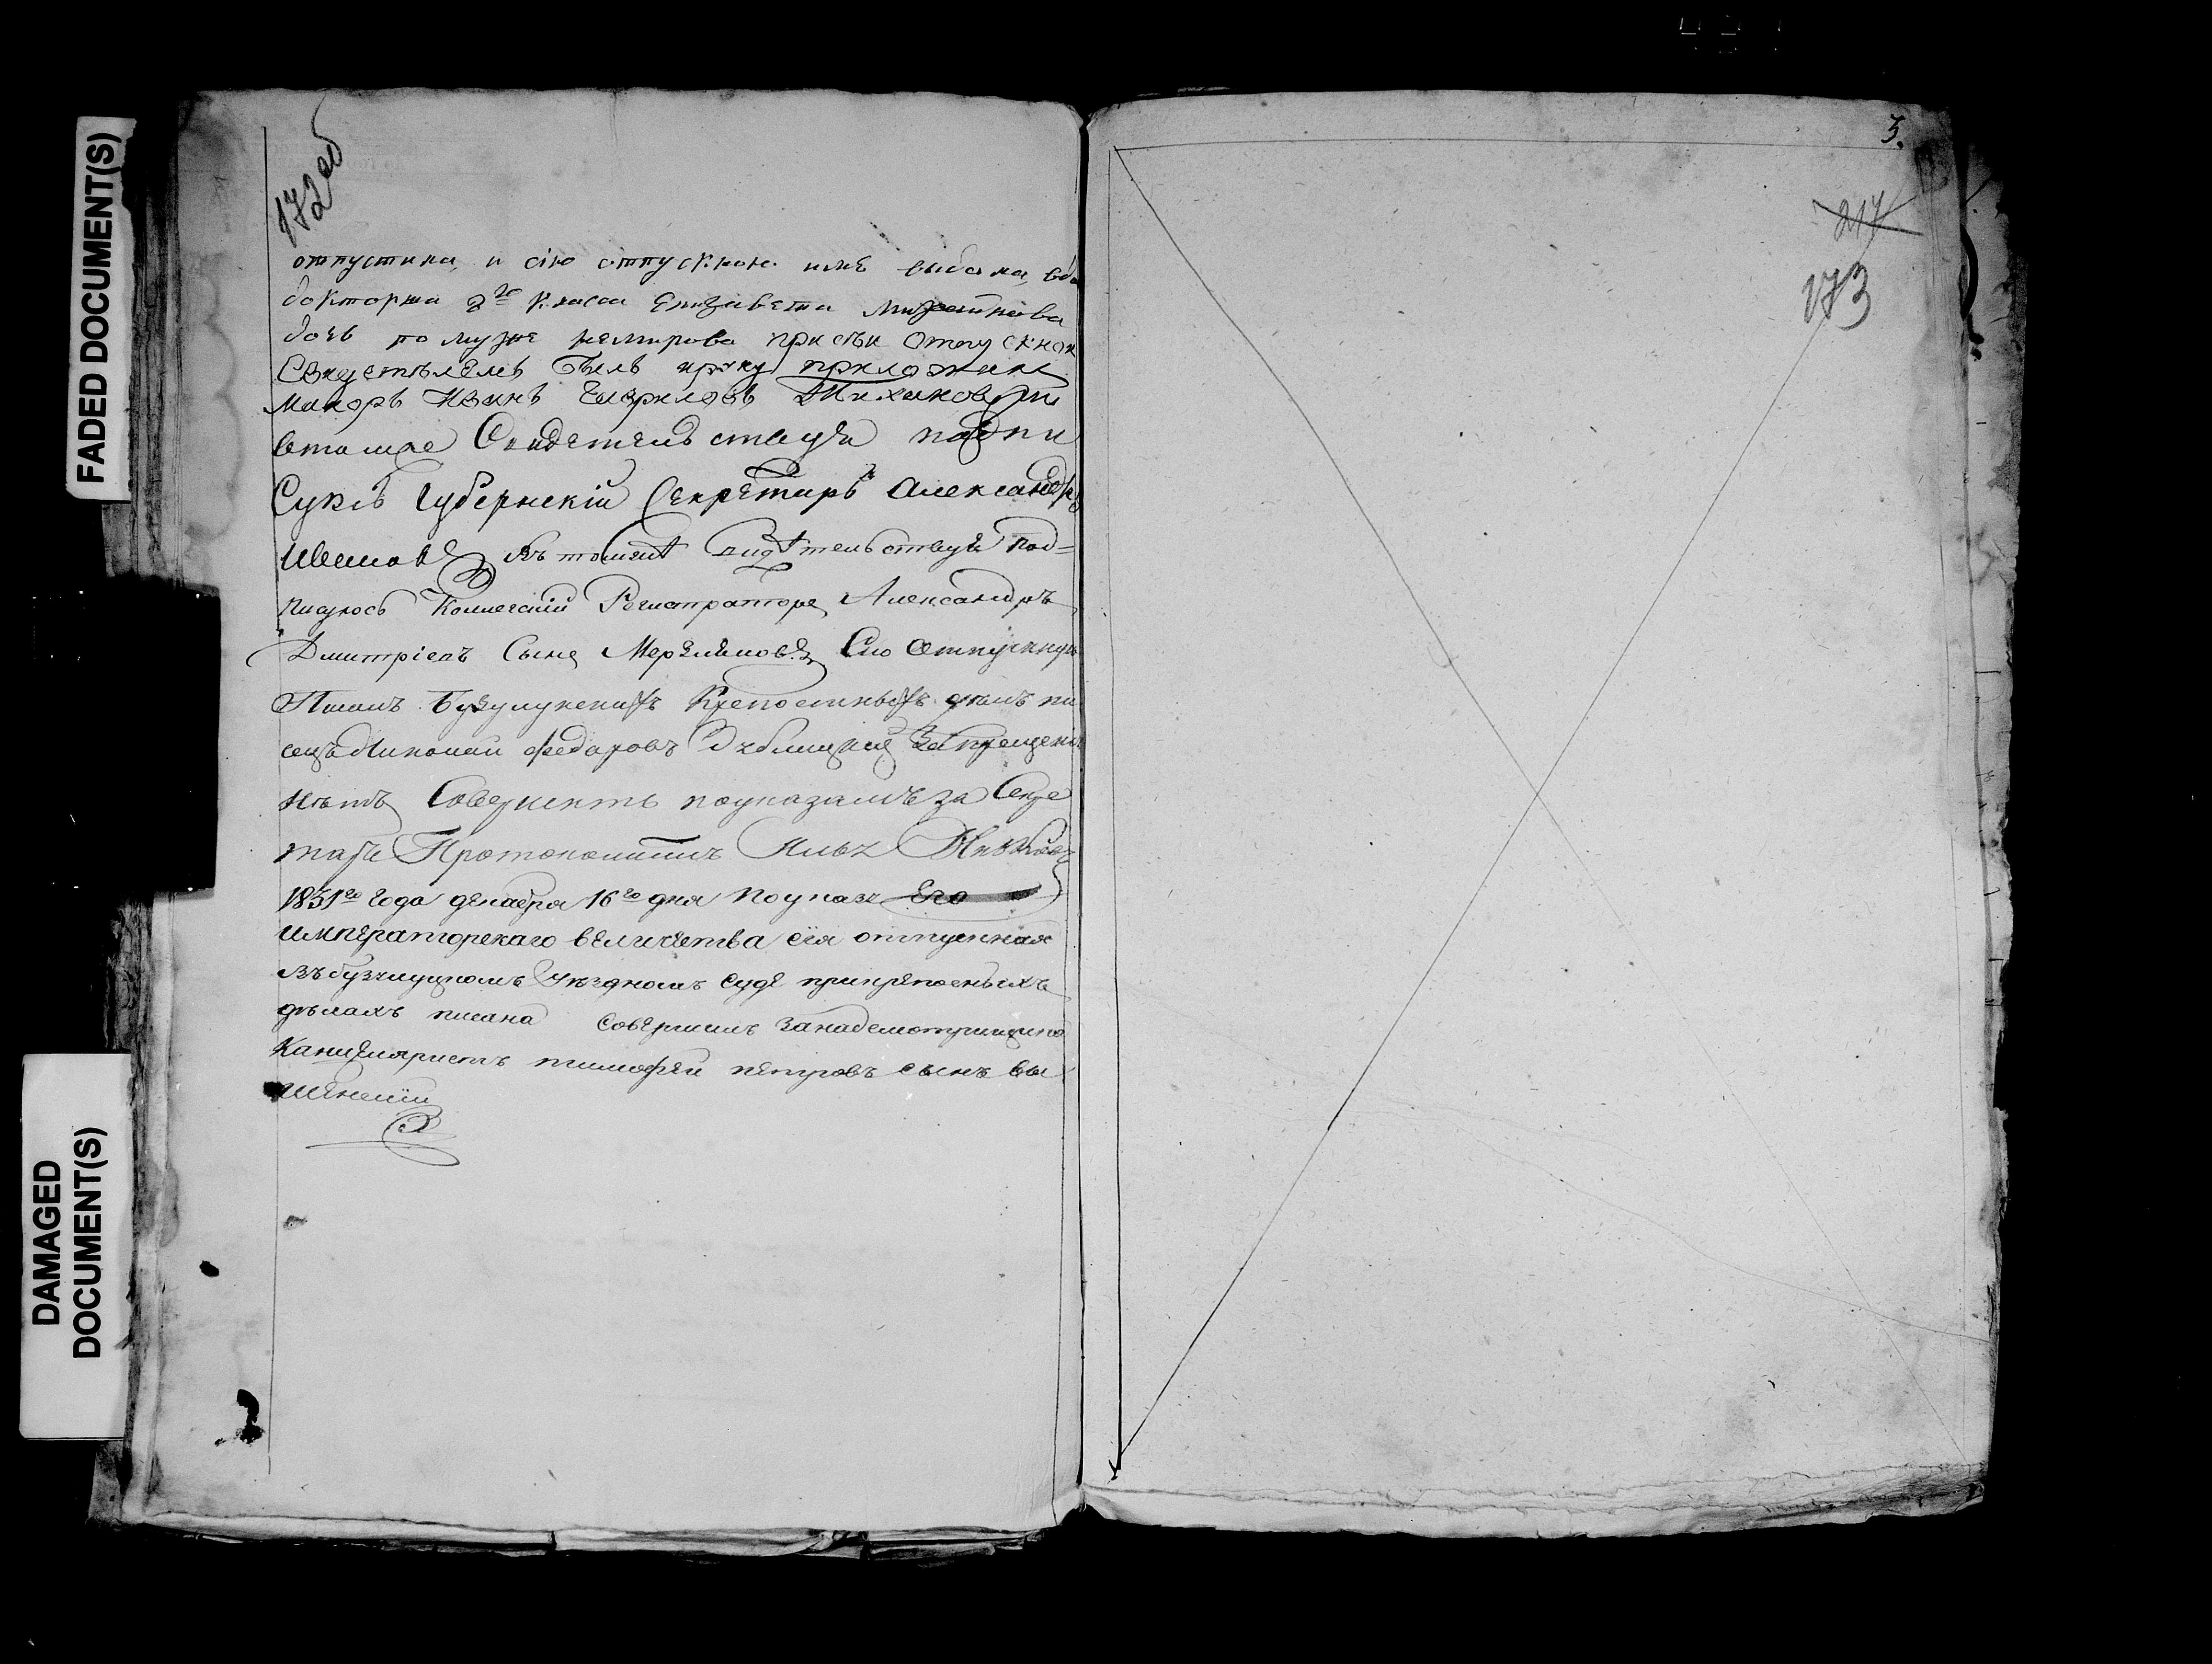 FADED DOCUMENT(S)
DAMAGED
DOCUMENT(S)
172об
отпустила, и сію отпускною имъ выдала, вдо
докторша 2го класса Елизавета
дочь по муже немирова при сеи отпускнои
Свидетелемъ былъ ируку приложилъ
маиоръ Иванъ Гавриловъ
втомже Свидетельствуя подпи
Суюсь Губернскіи Секретарь Александръ
Въ томже Свидѣтельствуя под=
писуюсь Коллегскій Регистраторъ Александръ
Дмитріевъ Сынъ Сию Отпускную
Писалъ Бузулукскихъ Крепостныхъ дѣлъ пи
сецъ Николай Федоровъ Запрещения
Нѣтъ Совершить поуказамъ за Секре
таря Протоколистъ
1831го года декабря 16го дня По указу Его
императорскаго величества сія отпускная
въ бузулуцкомъ Уѣздномъ Суде прикрепосныхъ
дѣлахъ писана Совершилъ Занадсмотрщика
Канцеляристъ тимофей петровъ сынъ вы
шенскій
3.
217
173